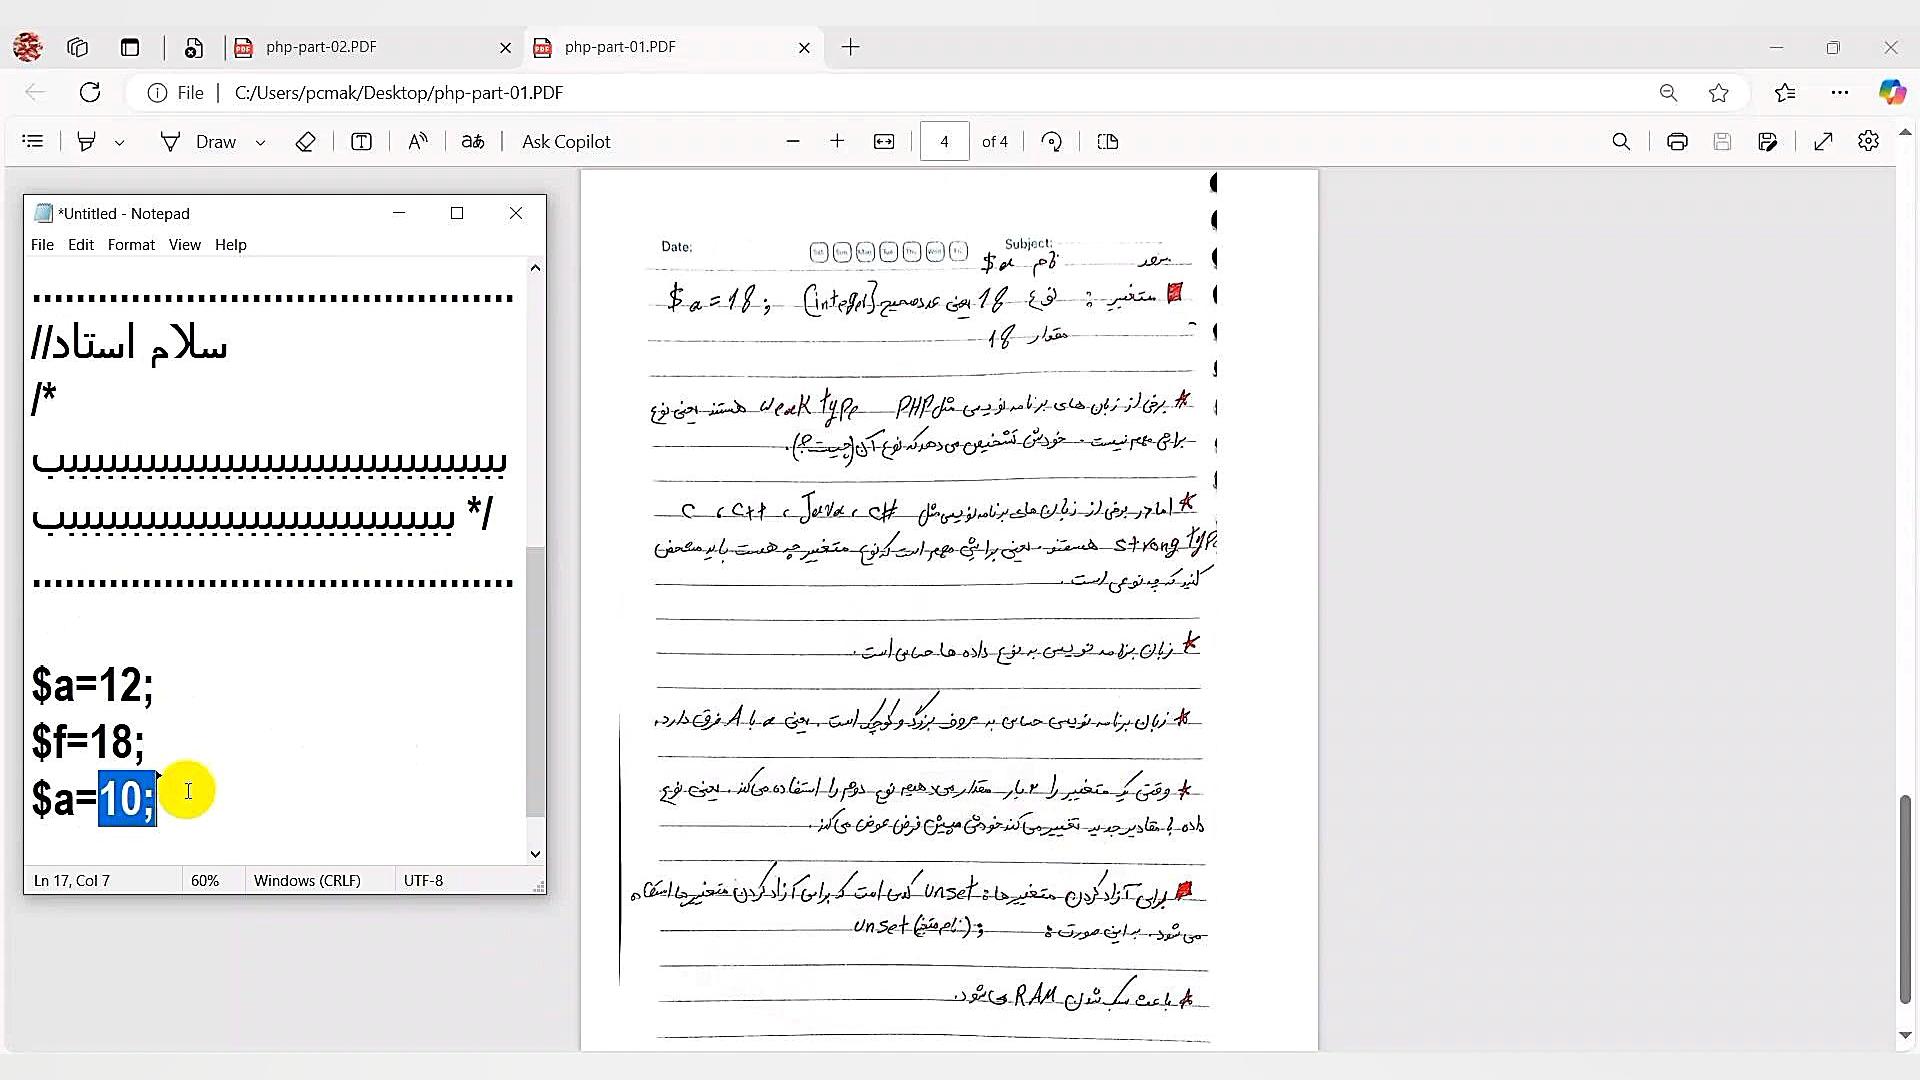 php-part-02.PDF
php-part-01.PDF
File
C:/Users/pcmak/Desktop/php-part-01.PDF
Draw
Ask Copilot
4 of 4
*Untitled - Notepad
File Edit Format View Help
........................................
//سلام استاد
/*
*/
........................................
$a=12;
$f=18;
$a=10;
Ln 17, Col 7
60%
Windows (CRLF)
UTF-8
Date:
Subject:
نام $a
متغییر : نوع 18 یعنی عدد صحیح (integer) $a = 18 ;
مقدار 18
* برخی از زبان های برنامه نویسی مثل PHP weak type هستند یعنی نوع
براش مهم نیست. خودش تشخیص می دهد که نوع آن (چیست؟).
* اما در برخی از زبان های برنامه نویسی مثل C ، C++ ، Java ، C#
strong type هستند. یعنی براش مهم است که نوع متغییر چه هست باید مشخص
کنید که چه نوعی است.
* زبان برنامه نویسی به نوع داده ها حساس است.
* زبان برنامه نویسی حساس به حروف بزرگ و کوچک است. یعنی a با A فرق دارد.
* وقتی یک متغییر را ۲ بار مقدار می دهیم نوع دوم را استفاده می کند. یعنی نوع
داده با مقادیر جدید تغییر می کند خودش پیش فرض عوض می کند.
برای آزاد کردن متغییرها: unset کدی است که برای آزاد کردن متغییرها استفاده
می شود. به این صورت : unset (نام متغیر) ;
* باعث سبک شدن RAM می شود.